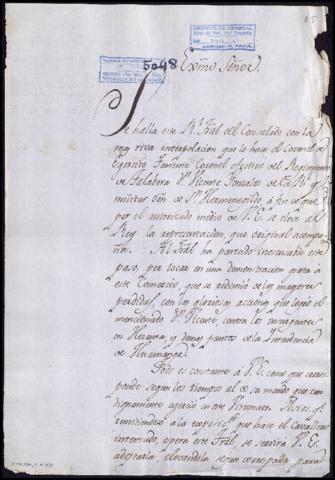 65
ARCHIVO DE ABASCAL
5048
Exmo Señor.
Se halla este Rl. Tral. del Consulado con la
mas viva interpelacion que le hace el Coronel de
Exercito Teniente Coronel efectivo del Regimiento
de Talabera Dn. Vicente Gonzales de la Rl. y
militar Orn. de Sn. Hermenegildo, a fin de que
por el autorizado medio de V.E. se eleve al
Rey la representacion, que original acompa
ña. Al Tral. ha parecido inescusable este
paso, por tocar en una demostracion grata á
este Comercio, que se redimió de las mayores
perdidas, con las gloriosas acciones que logró el
mencionado Dn. Vicente, contra los insurgentes
en Huanta, y demas puntos de la Intendencia
de Huamanga.
Todo es constante á V.E. como que corres
ponde segun los tiempos al de su mando que tan
dignamente exercio en este Virreynato. Pues, re
mitiendose á la exposicn. que hace el Cavallero
interesado, espera este Tral. se servirá V.E.
adoptarla, elevandola segun corresponda para